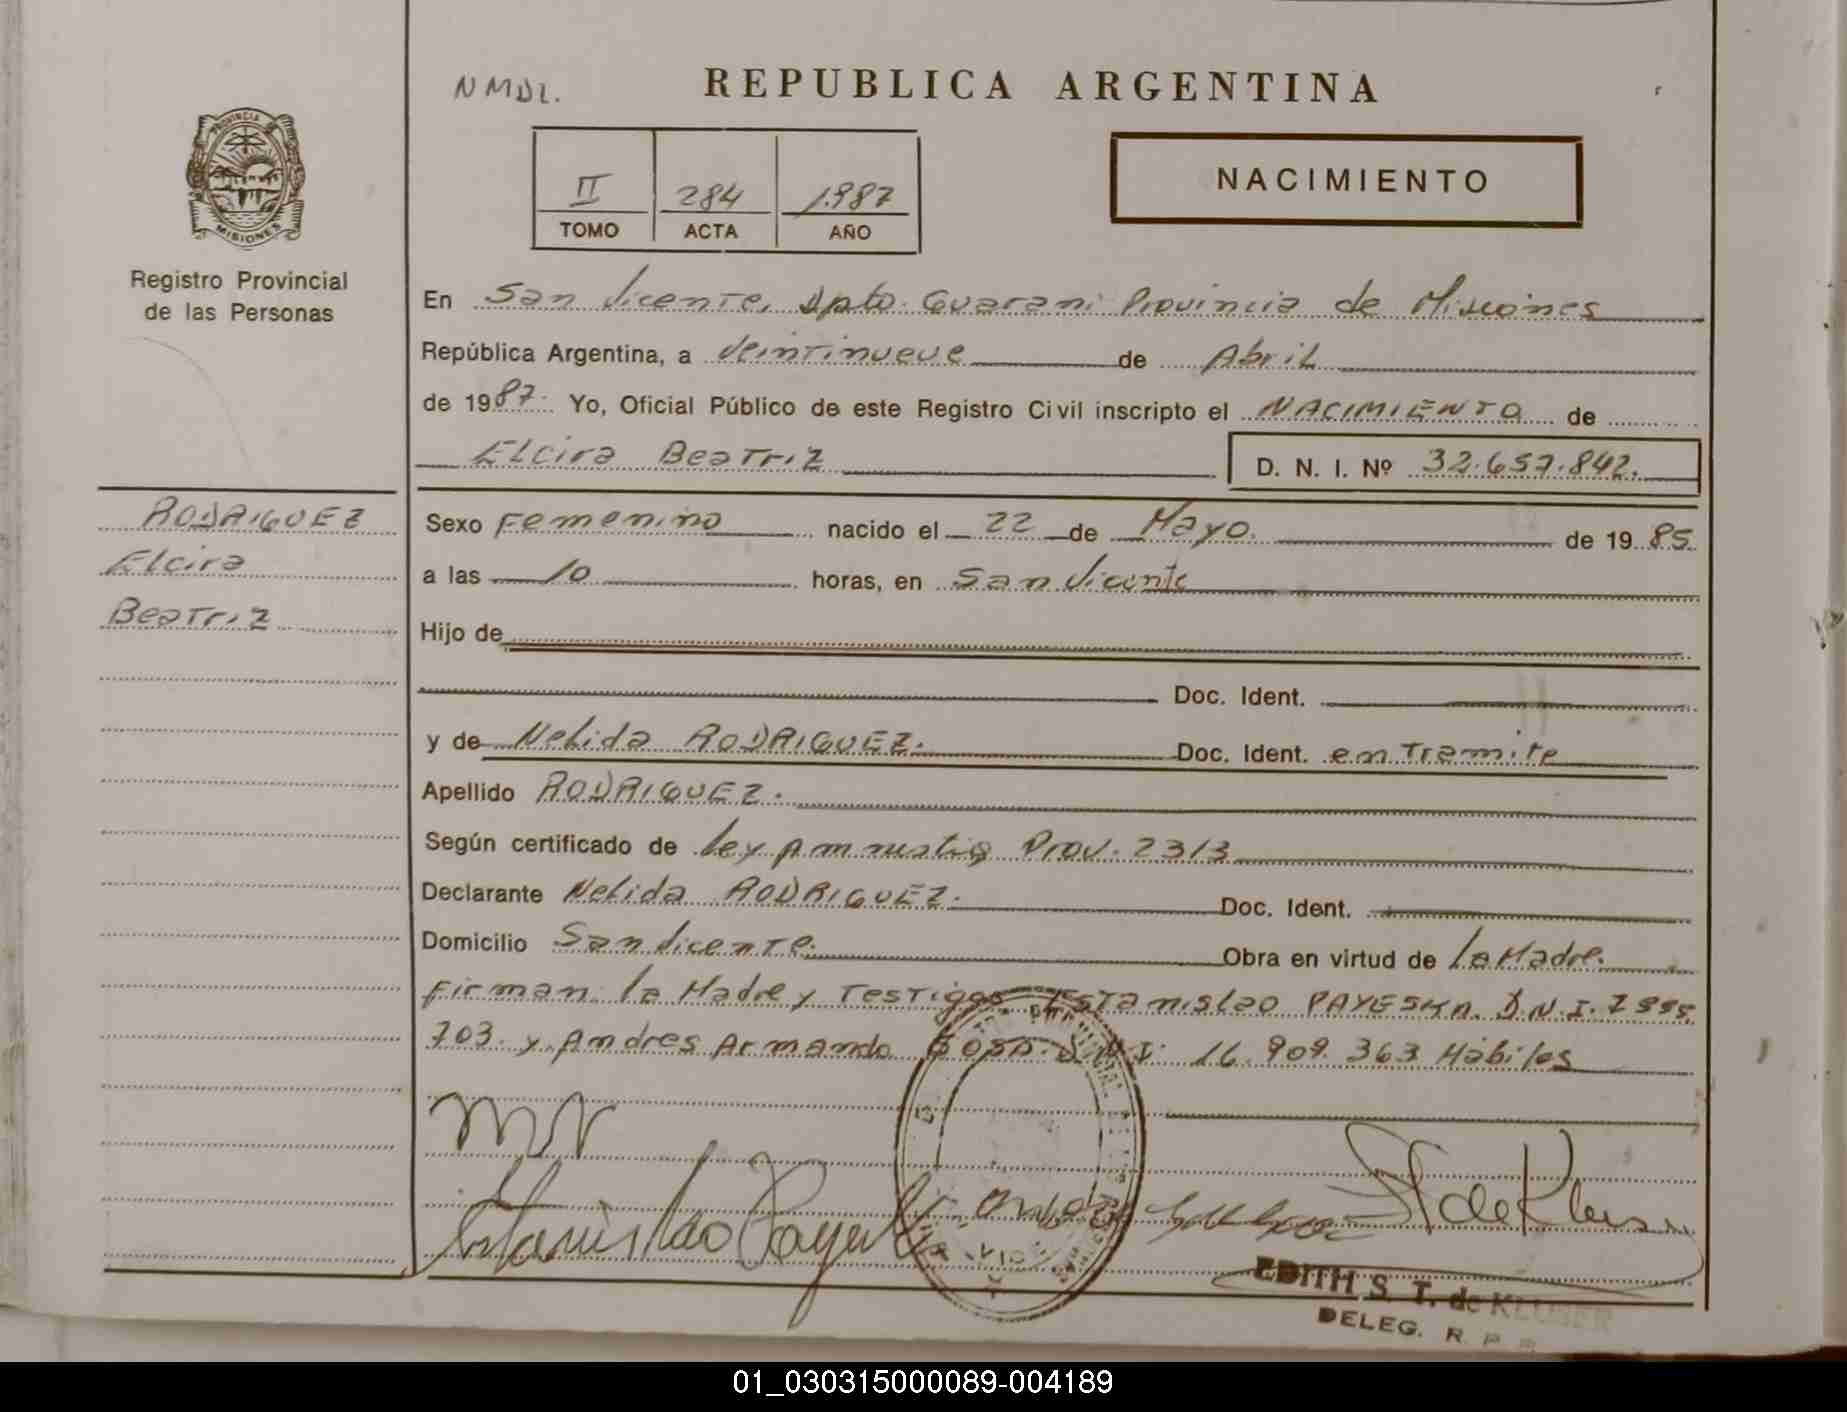 NMDL.
REPUBLICA ARGENTINA
NACIMIENTO
II 284 1987
TOMO ACTA AÑO
PROVINCIA DE MISIONES
Registro Provincial
de las Personas
En San Vicente, Dpto. Guarani Provincia de Misiones
República Argentina, a Veintinueve de Abril
de 1987. Yo, Oficial Público de este Registro Civil inscripto el NACIMIENTO de
Elcira Beatriz D. N. I. Nº 32.657.842.
RODRIGUEZ
Elcira
Beatriz
Sexo Femenino nacido el 22 de Mayo. de 1985
a las 10 horas, en San Vicente
Hijo de
Doc. Ident.
y de Nelida RODRIGUEZ. Doc. Ident. en Tramite
Apellido RODRIGUEZ.
Según certificado de Ley Amnistia Prov. 2313
Declarante Nelida RODRIGUEZ. Doc. Ident.
Domicilio San Vicente. Obra en virtud de La Madre.
Firman: la Madre y Testigos Estanislao PAYESKA. D.N.I. 7
703. y Andres Armando D.N.I. 16.909.363 Hábiles
Estanislao
de
EDITH S. T. de KLUBER
DELEG. R. P.
01_030315000089-004189